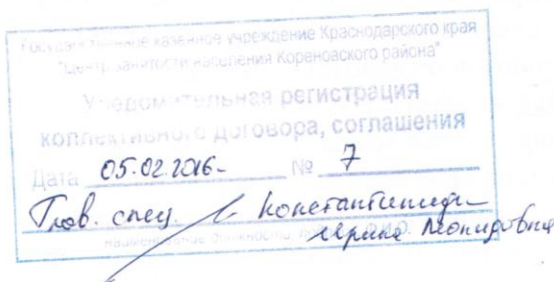 Государственное казенное учреждение Краснодарского края
"Центр занятости населения Кореновского района"
Уведомительная регистрация
коллективного договора, соглашения
Дата 05.02.2016- № 7
Глав. спец. Константиниди
наименование должности, подпись, Ф.И.О. Ирина Леонидовна